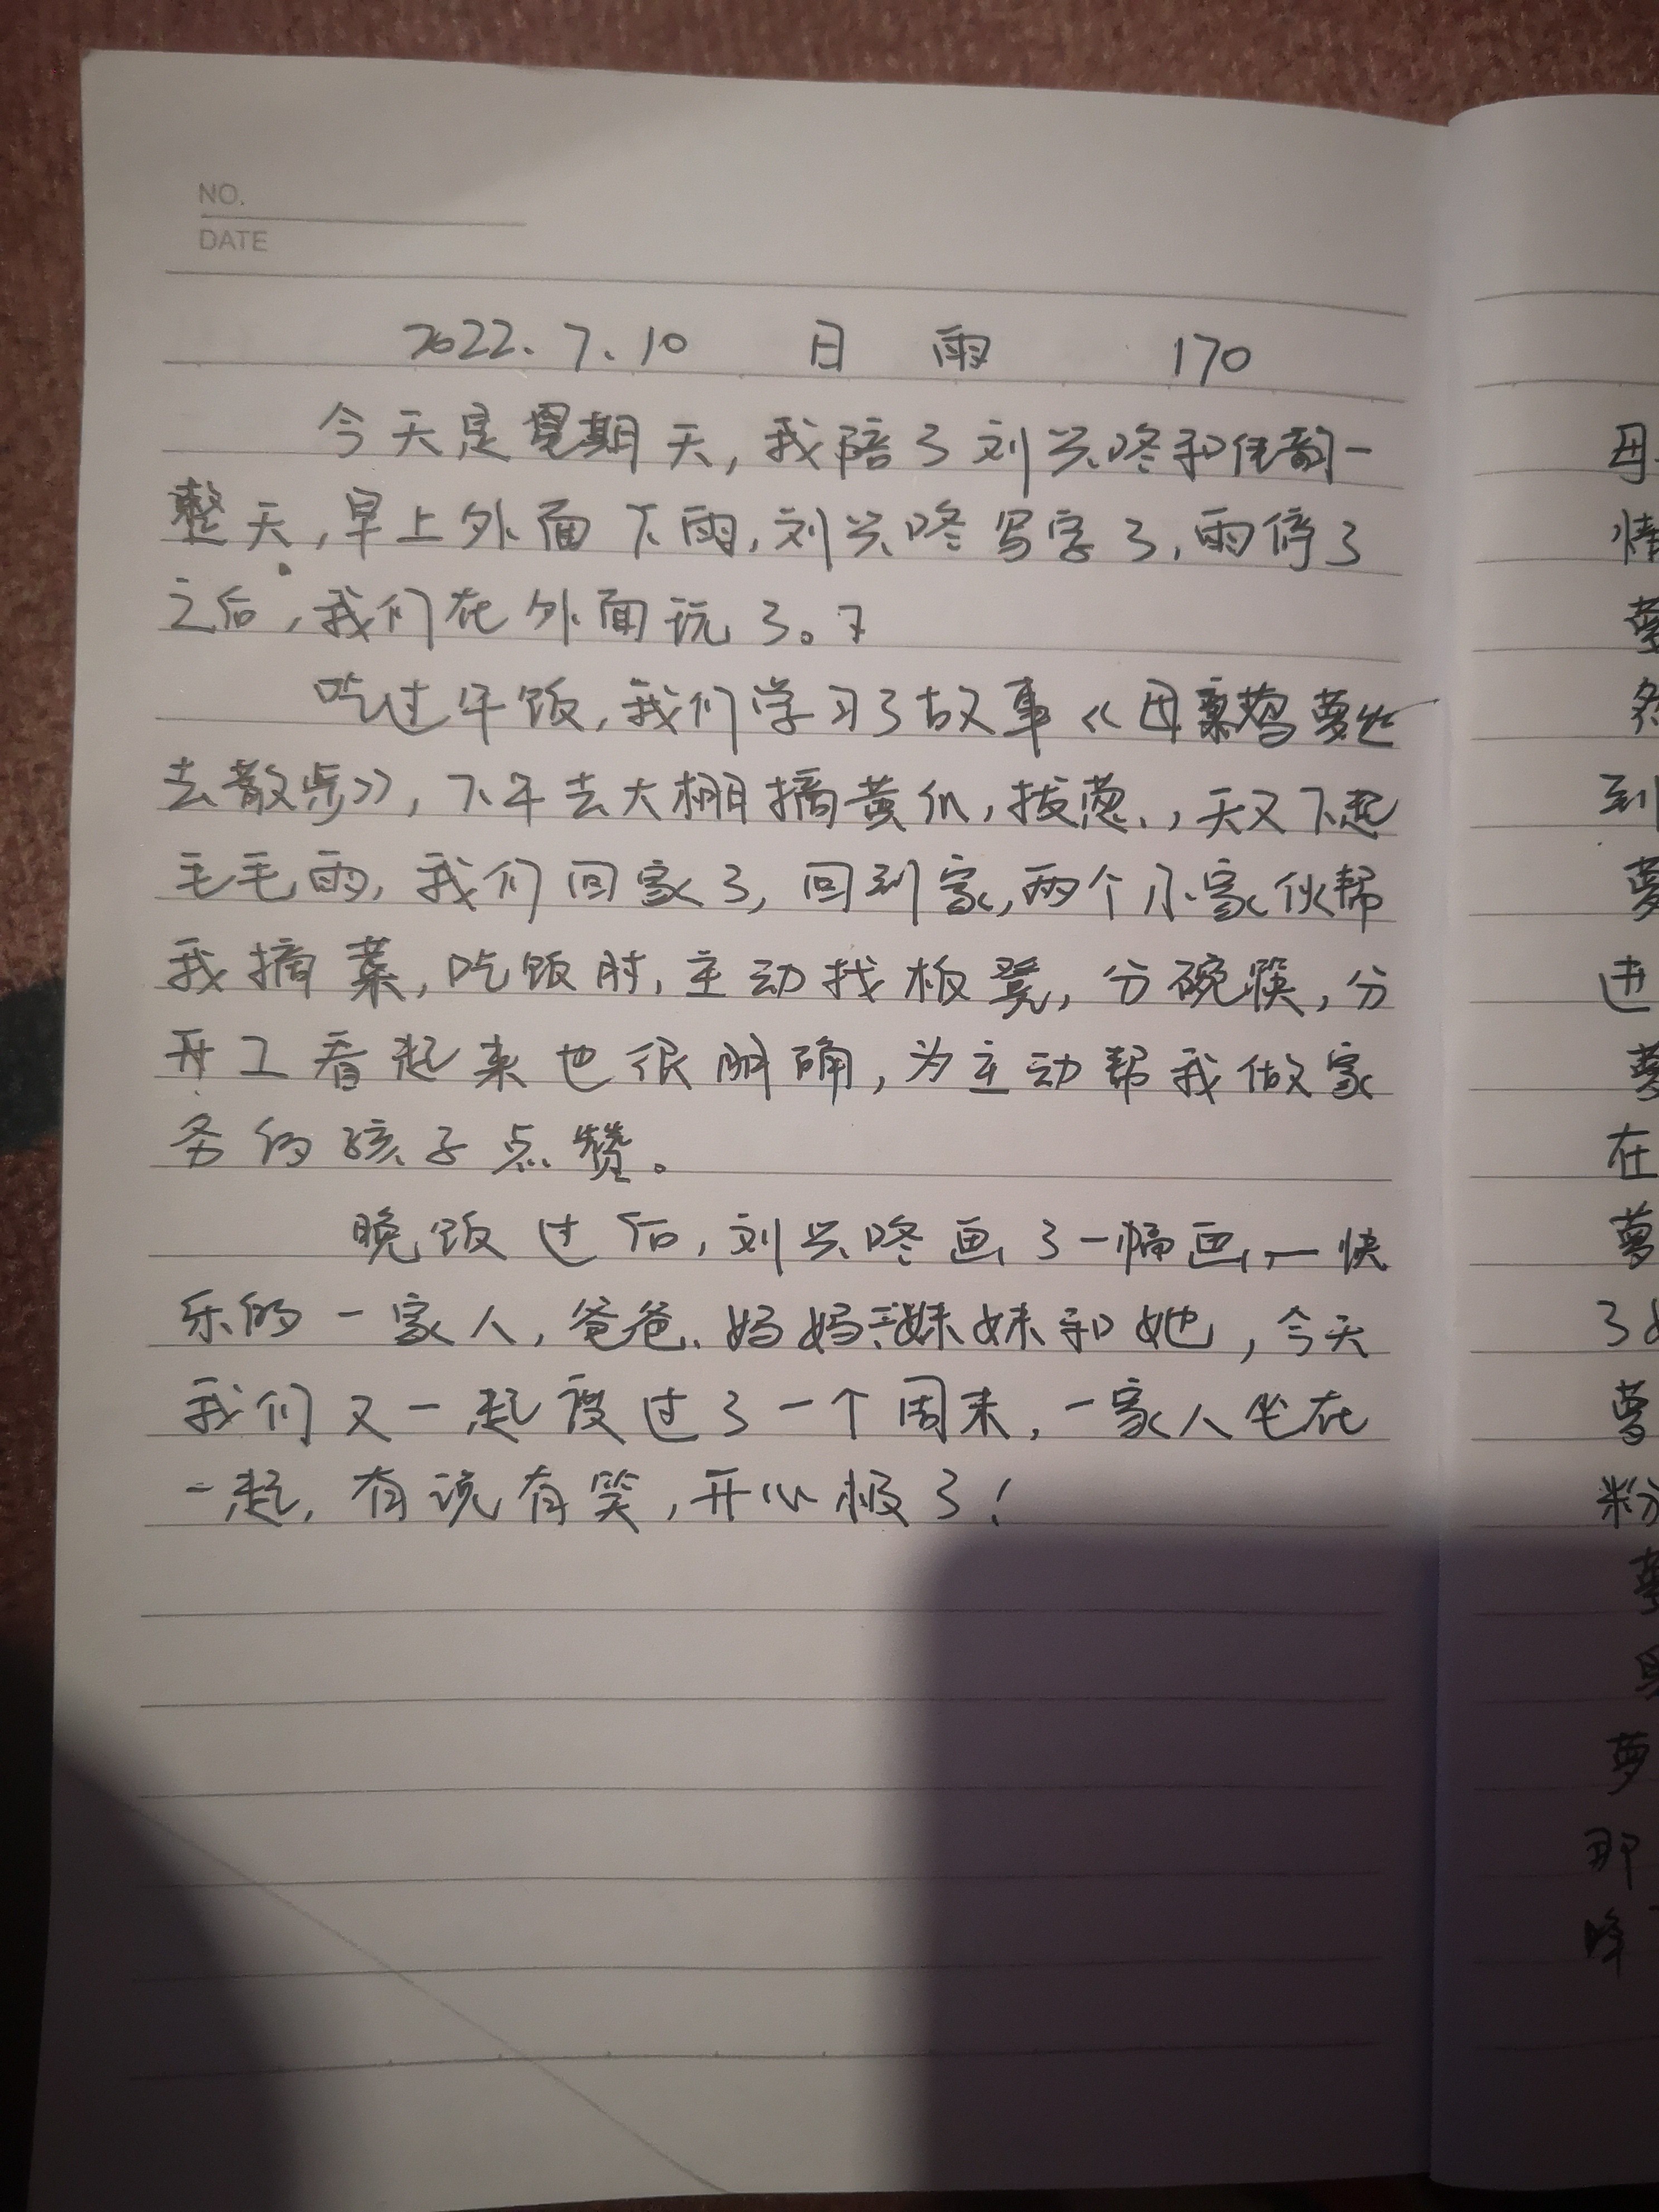 NO.
DATE
2022.7.10 日 雨 170
今天是星期天,我陪了刘兴咚和佳韵一
整天,早上外面下雨,刘兴咚写字了,雨停了
之后,我们在外面玩了。
吃过午饭,我们学习了故事《母鸡萝丝
去散步》,下午去大棚摘黄瓜,拔葱,,天又下起
毛毛雨,我们回家了,回到家,两个小家伙帮
我摘菜,吃饭时,主动找板凳,分碗筷,分
开工看起来也很明确,为主动帮我做家
务的孩子点赞。
晚饭过后,刘兴咚画了一幅画,一快
乐的一家人,爸爸、妈妈、妹妹和她,今天
我们又一起度过了一个周末,一家人坐在
一起,有说有笑,开心极了!
母
情
萝
到
萝
进
萝
在
萝
了
萝
粉
萝
萝
那